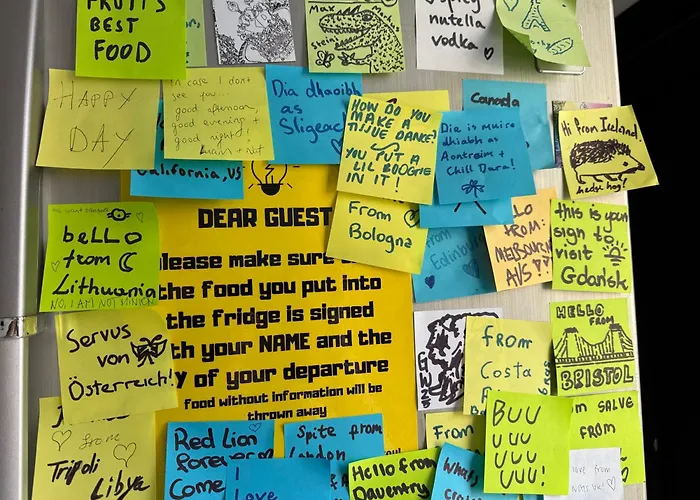 FRUIT'S
BEST
FOOD
Max
Stein
Spicy
nutella
vodka
HAPPY
DAY
In case I don't
see you...
good afternoon,
good evening +
good night!
Dia dhaoibh
as
Sligeach
HOW DO YOU
MAKE A
TISSUE DANCE?
YOU PUT A
LIL BOOGIE
IN IT!
Canada
Dia is muire
dhiabh as
Aontroim +
Chill Dara!
Hi from Ireland
hedgehog!
California, US
DEAR GUEST
please make sure
the food you put into
the fridge is signed
with your NAME and the
y of your departure
food without information will be
thrown away
From
Bologna
from
Edinburg
LO
FROM:
MELBOURNE
AUS
this is your
sign to
visit
Gdańsk
beLLO
from
Lithuania
NO, I AM NOT MINION
Servus
von
Österreich!
from
Costa
HELLO
FROM
BRISTOL
from
Tripoli
Libya
Red Lion
forever
Come
Spite from
London
I
love
Hello from
Daventry
From
What's
BUU
UUU
UUU
UUU!
SALVE
FROM
love from